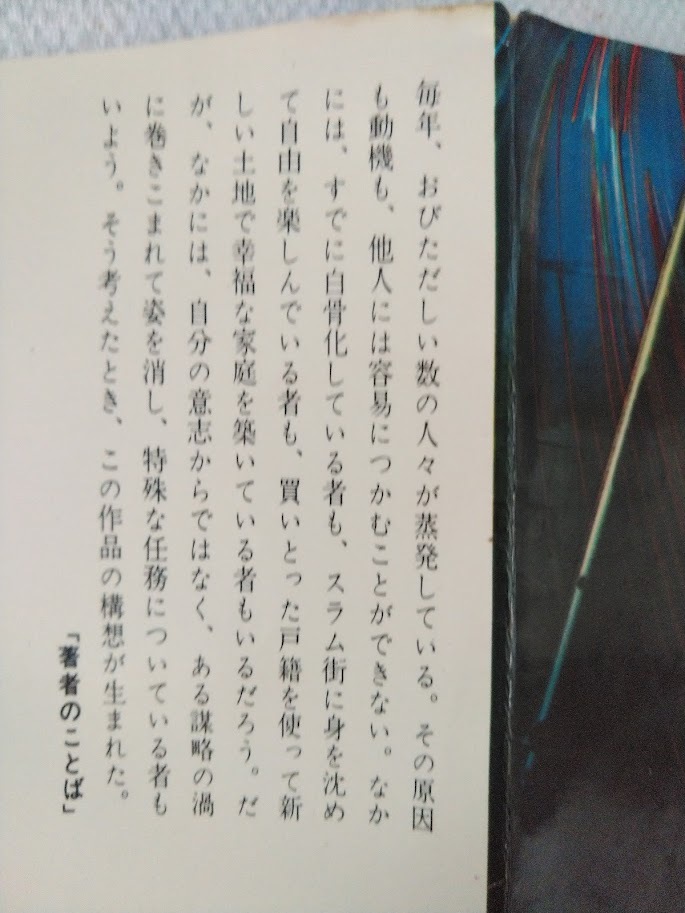 毎年、おびただしい数の人々が蒸発している。その原因
も動機も、他人には容易につかむことができない。なか
には、すでに白骨化している者も、スラム街に身を沈め
て自由を楽しんでいる者も、買いとった戸籍を使って新
しい土地で幸福な家庭を築いている者もいるだろう。だ
が、なかには、自分の意志からではなく、ある謀略の渦
に巻きこまれて姿を消し、特殊な任務についている者も
いよう。そう考えたとき、この作品の構想が生まれた。
「著者のことば」